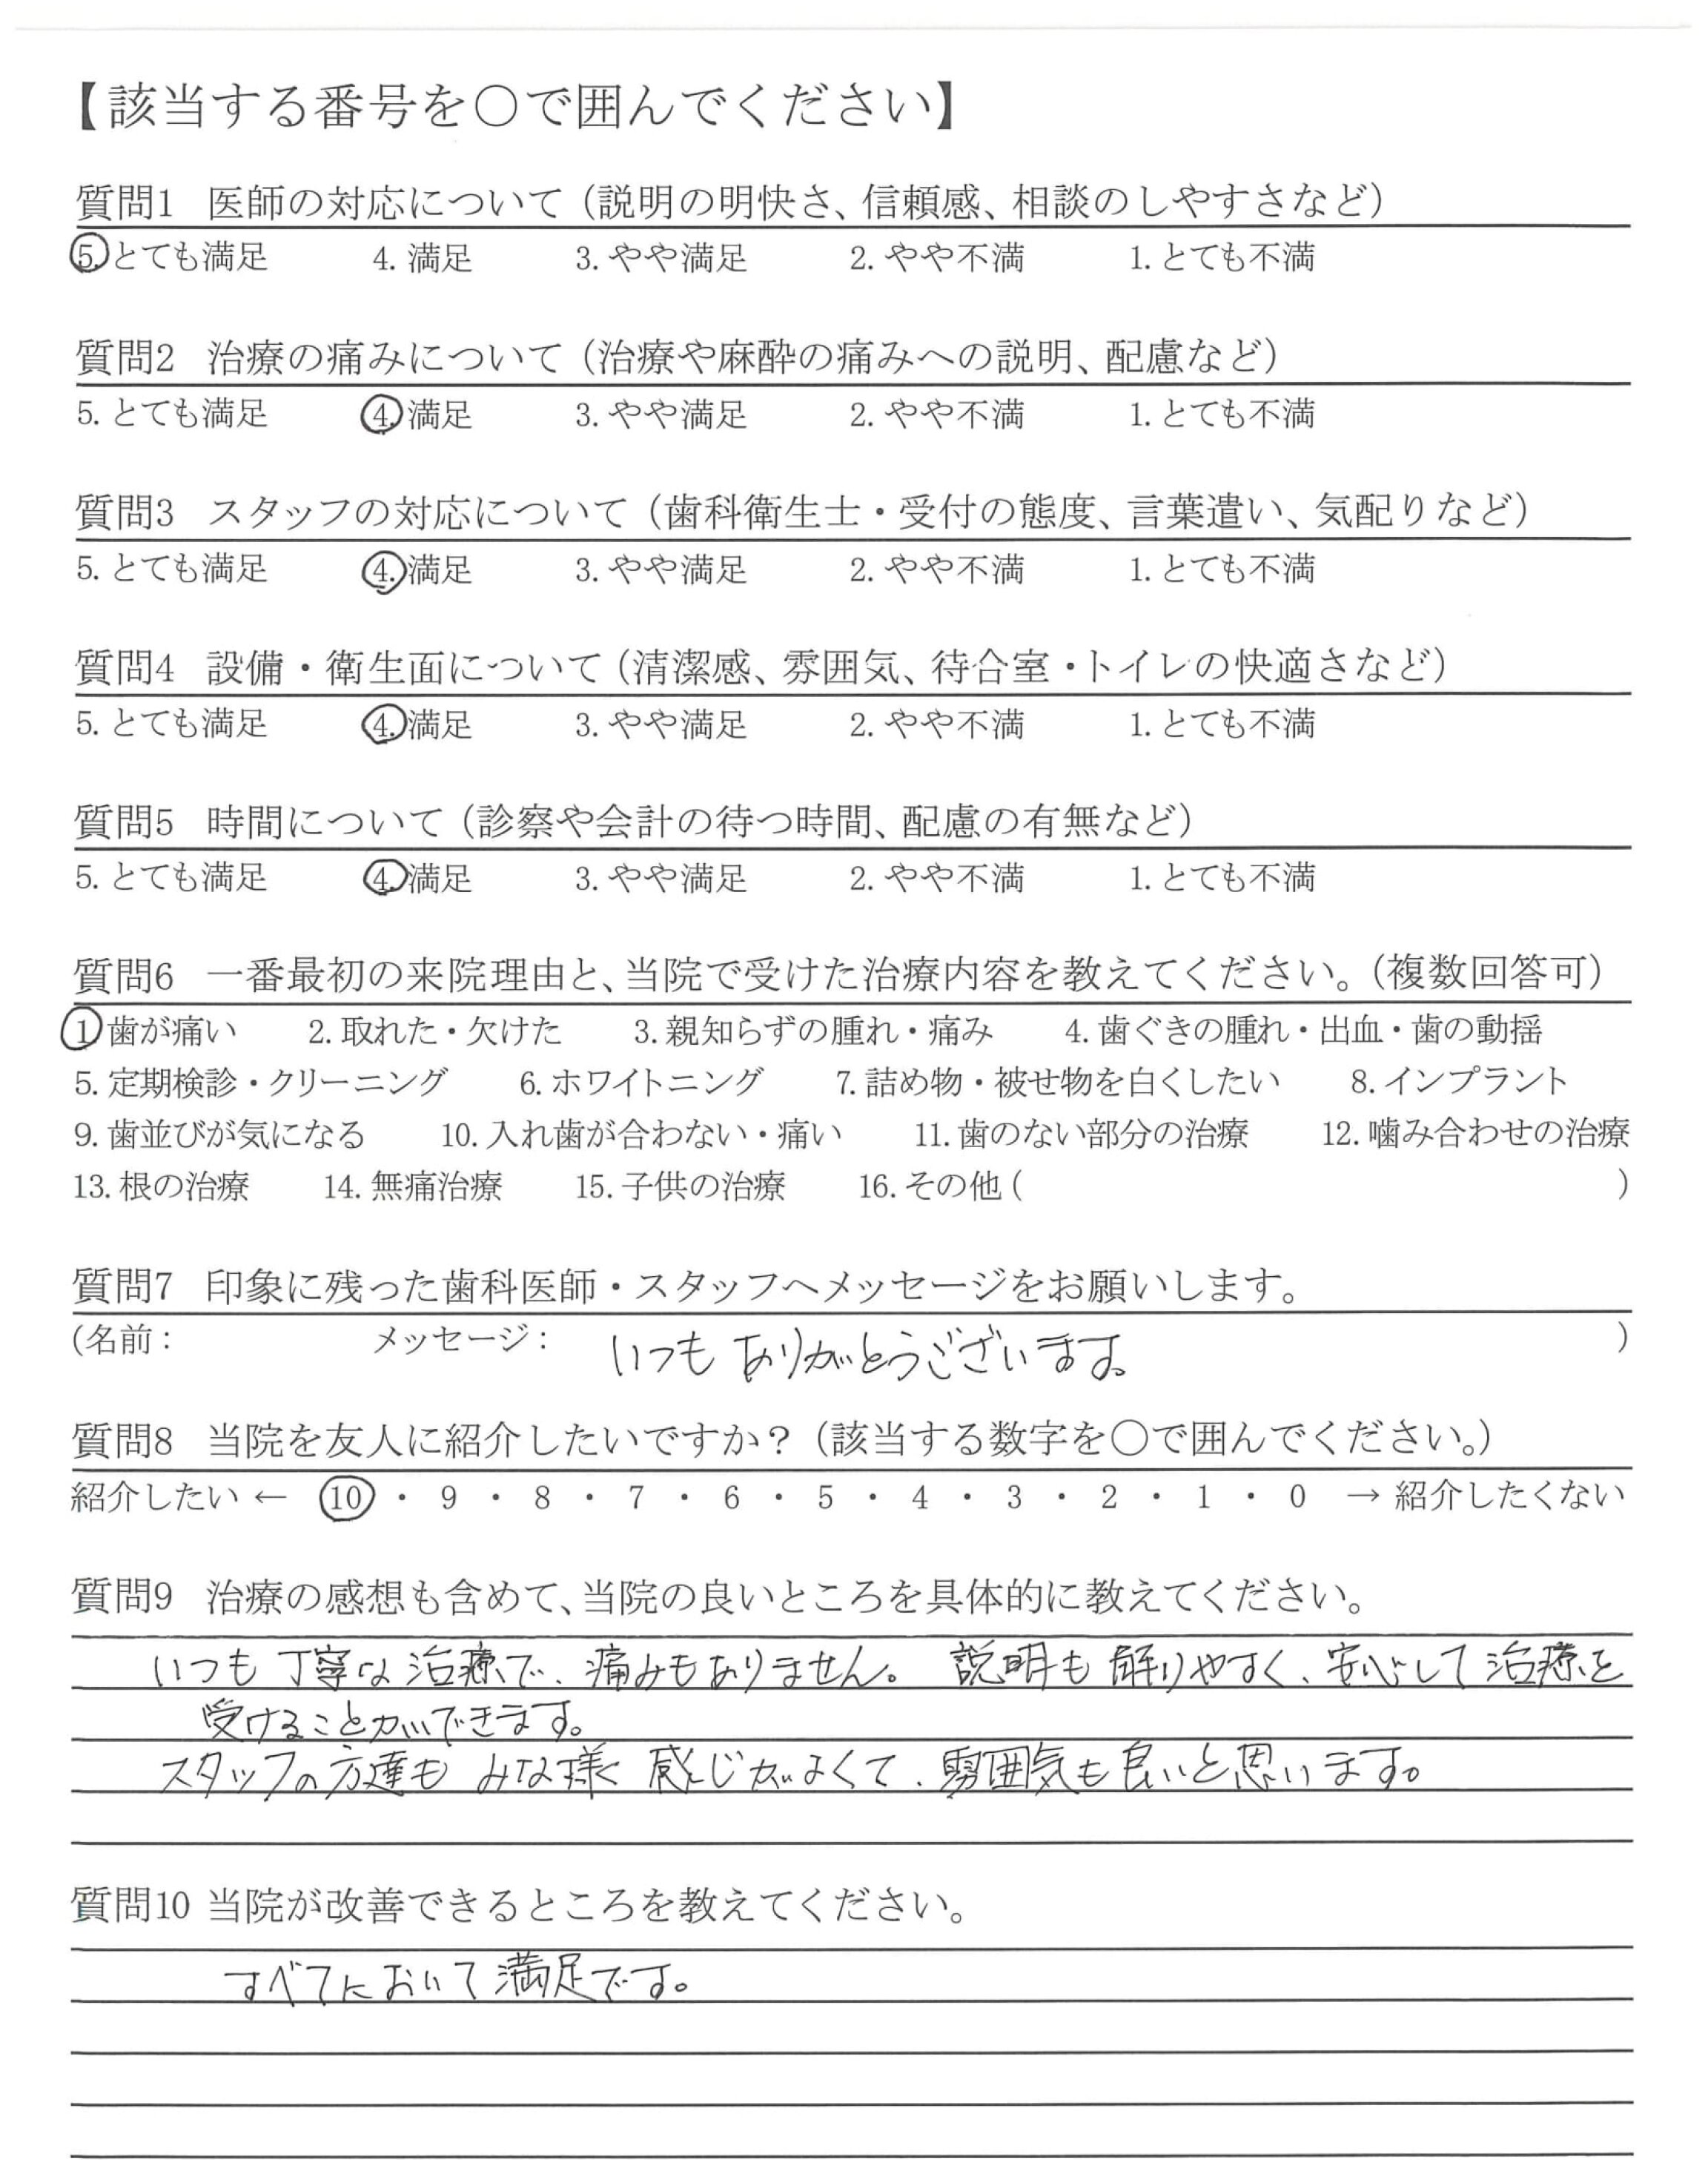 【該当する番号を○で囲んでください】
質問1 医師の対応について（説明の明快さ、信頼感、相談のしやすさなど）
5. とても満足 4. 満足 3. やや満足 2. やや不満 1. とても不満
質問2 治療の痛みについて（治療や麻酔の痛みへの説明、配慮など）
5. とても満足 4. 満足 3. やや満足 2. やや不満 1. とても不満
質問3 スタッフの対応について（歯科衛生士・受付の態度、言葉遣い、気配りなど）
5. とても満足 4. 満足 3. やや満足 2. やや不満 1. とても不満
質問4 設備・衛生面について（清潔感、雰囲気、待合室・トイレの快適さなど）
5. とても満足 4. 満足 3. やや満足 2. やや不満 1. とても不満
質問5 時間について（診察や会計の待つ時間、配慮の有無など）
5. とても満足 4. 満足 3. やや満足 2. やや不満 1. とても不満
質問6 一番最初の来院理由と、当院で受けた治療内容を教えてください。（複数回答可）
1 歯が痛い 2. 取れた・欠けた 3. 親知らずの腫れ・痛み 4. 歯ぐきの腫れ・出血・歯の動揺
5. 定期検診・クリーニング 6. ホワイトニング 7. 詰め物・被せ物を白くしたい 8. インプラント
9. 歯並びが気になる 10. 入れ歯が合わない・痛い 11. 歯のない部分の治療 12. 噛み合わせの治療
13. 根の治療 14. 無痛治療 15. 子供の治療 16. その他 ( )
質問7 印象に残った歯科医師・スタッフへメッセージをお願いします。
(名前： メッセージ： いつもありがとうございます。 )
質問8 当院を友人に紹介したいですか？（該当する数字を○で囲んでください。）
紹介したい ← 10 ・ 9 ・ 8 ・ 7 ・ 6 ・ 5 ・ 4 ・ 3 ・ 2 ・ 1 ・ 0 → 紹介したくない
質問9 治療の感想も含めて、当院の良いところを具体的に教えてください。
いつも丁寧な治療で、痛みもありません。 説明も解りやすく、安心して治療を
受けることができます。
スタッフの方達も みな様 感じがよくて、雰囲気も良いと思います。
質問10 当院が改善できるところを教えてください。
すべてにおいて満足です。